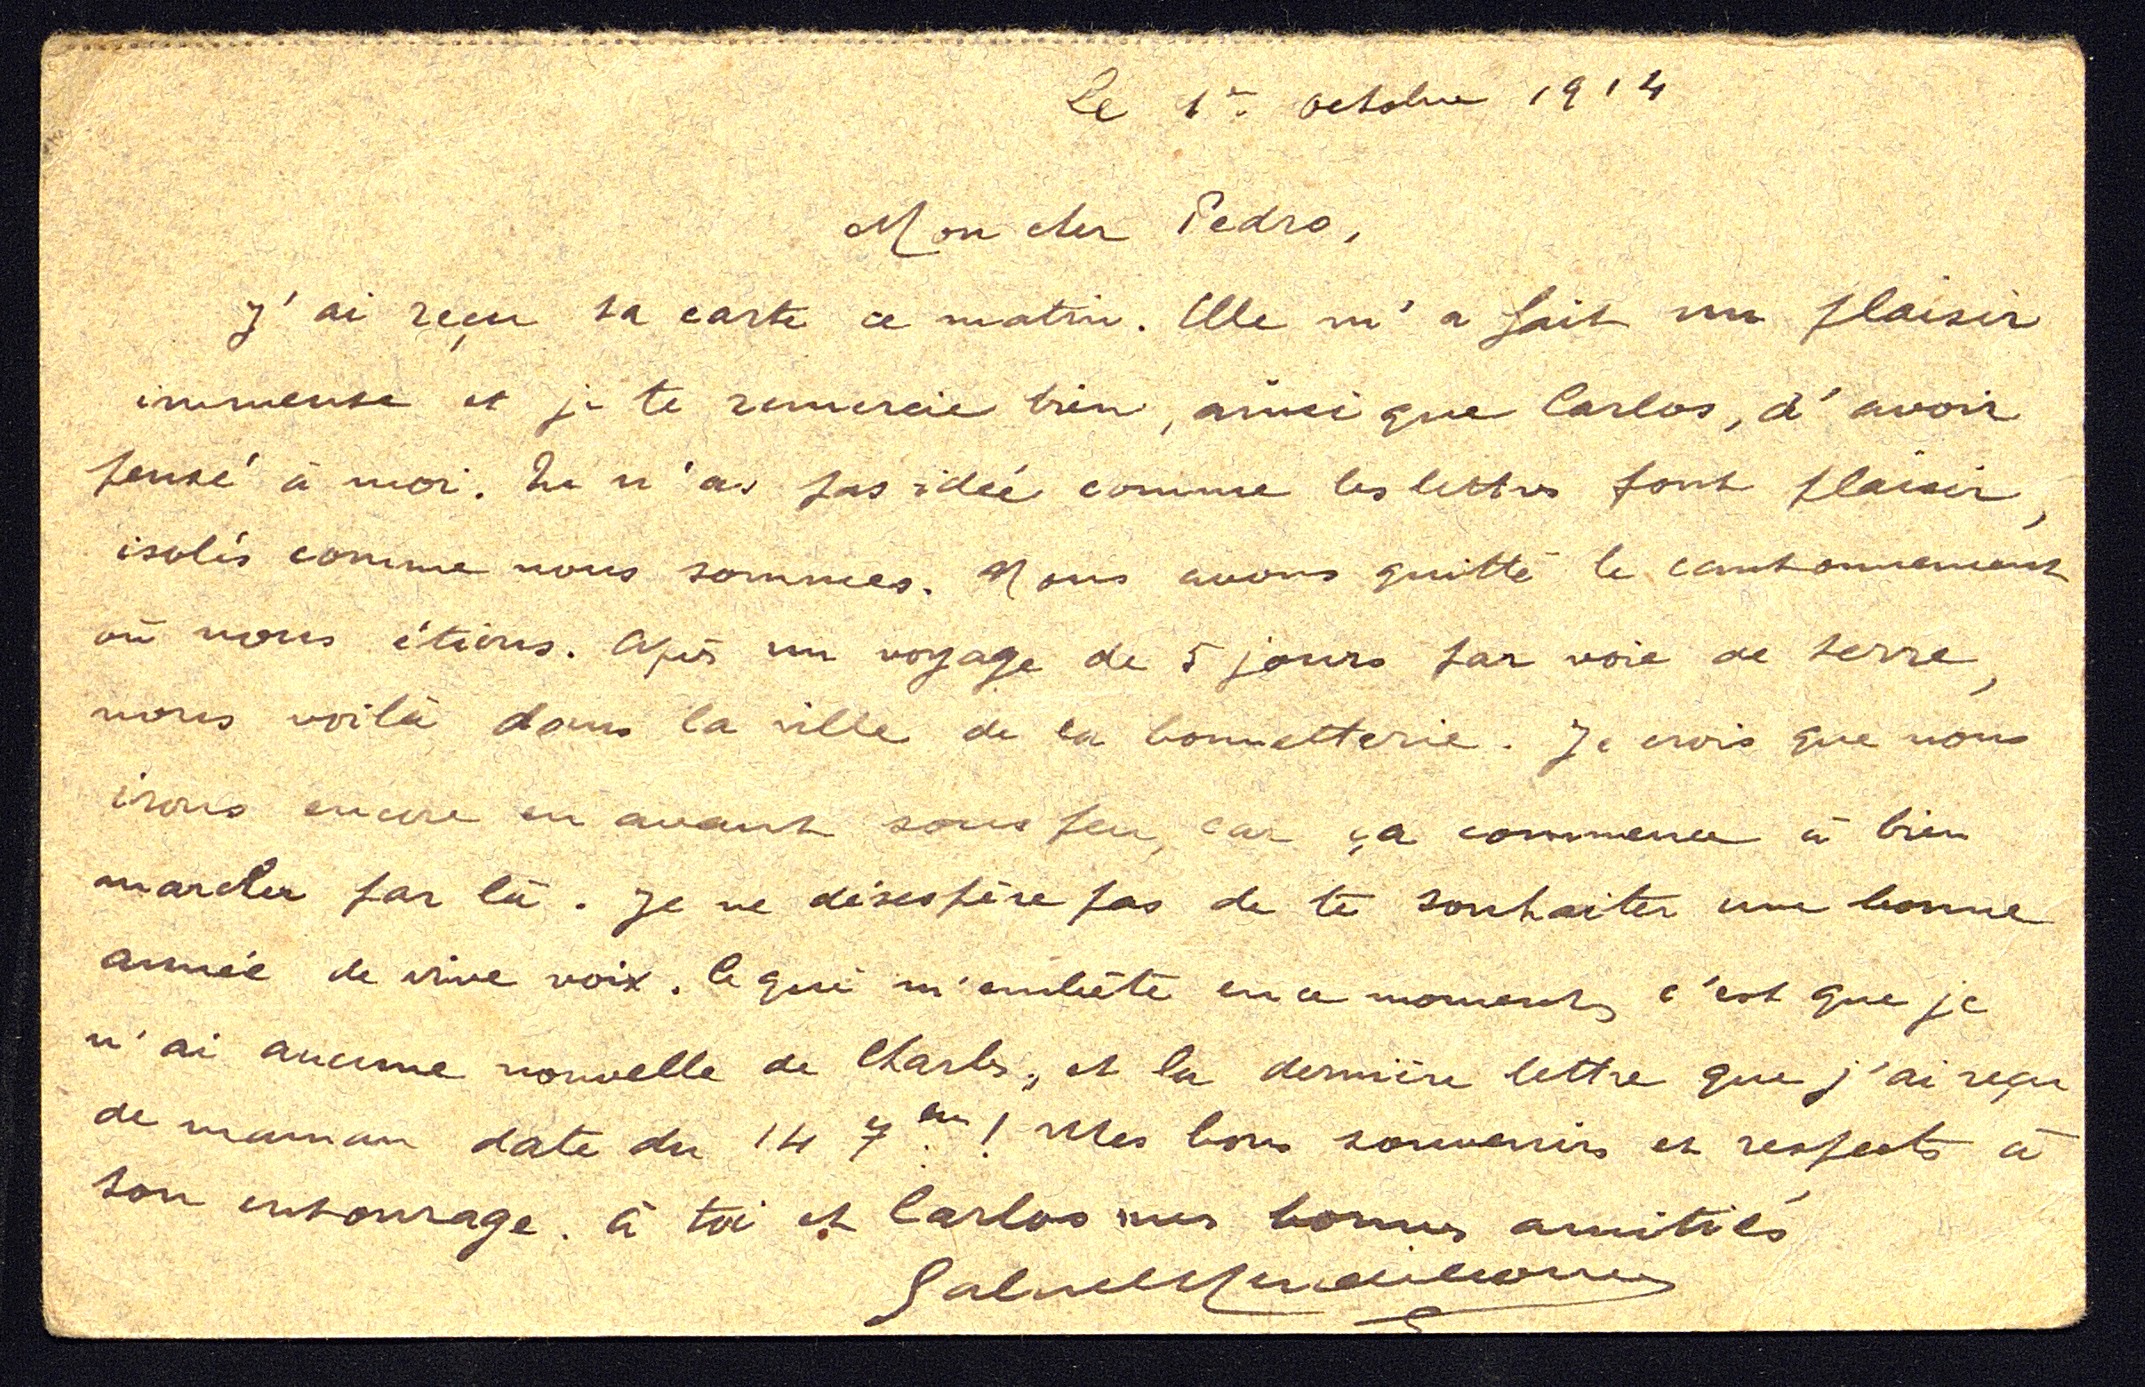 Le 1er octobre 1914
Mon cher Pedro,
J'ai reçu ta carte ce matin. Elle m'a fait un plaisir
immense et je te remercie bien, ainsi que Carlos, d'avoir
pensé à moi. Tu n'as pas idée comme les lettres font plaisir,
isolés comme nous sommes. Nous avons quitté le cantonnement
où nous étions. Après un voyage de 5 jours par voie de terre,
nous voilà dans la ville de la bonnetterie. Je crois que nous
irons encore en avant sous peu, car ça commence à bien
marcher par là. Je ne désespère pas de te souhaiter une bonne
année de vive voix. Ce qui m'embête en ce moment, c'est que je
n'ai aucune nouvelle de Charles, et la dernière lettre que j'ai reçu
de maman date du 14 7bre! Mes bons souvenirs et respects à
ton entourage. à toi et Carlos mes bonnes amitiés
Gabriel